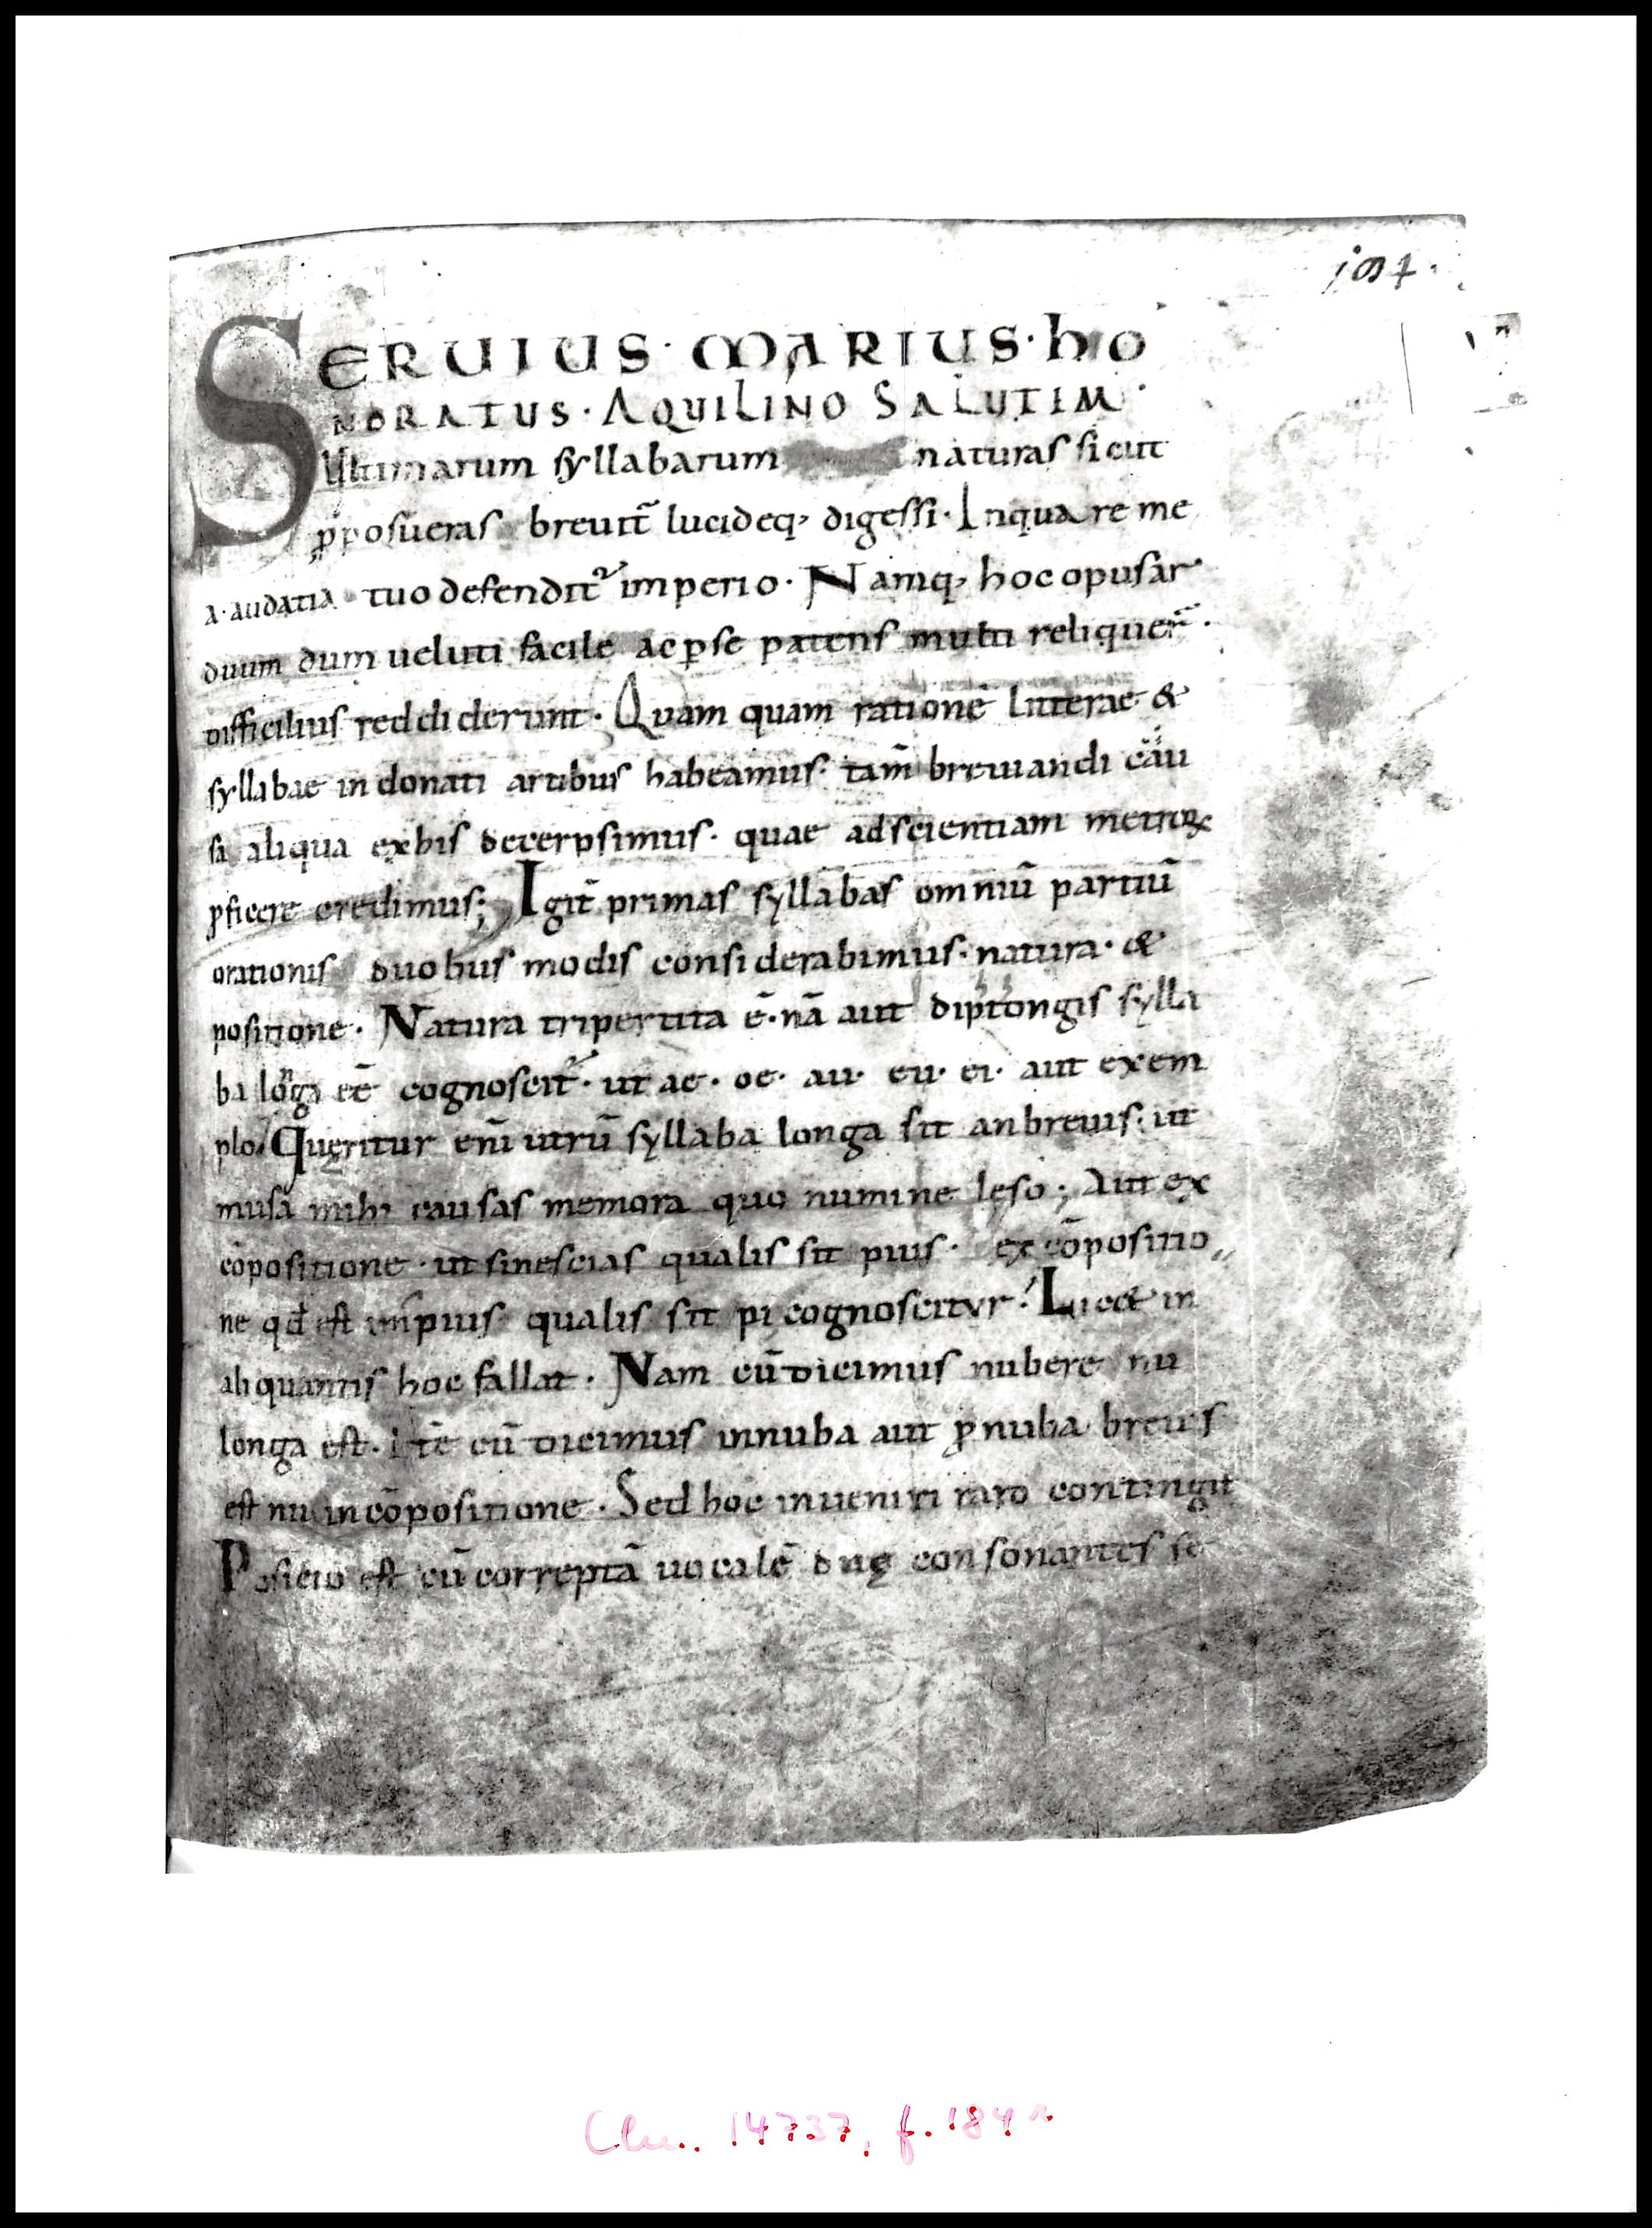 184.
SERUIUS·MARIUS·HO
NORATUS·AQUILINO SALUTIM·
Ultimarum syllabarum naturas sicut
proposueras breuit̄ lucideq; digessi· Inqua re me
a·audatia tuo defendit᷑ imperio· Namq; hoc opusar
duum dum ueluti facile ac ꝑse patens multi reliquer̄·
difficilius reddiderunt· Quam quam rationē litterae &
syllabae in donati artibus habeamus· tam̄ breuiandi cau
sa aliqua exhis decerpsimus· quae adscientiam metroꝝ
ꝓficere credimus; Igit̄ primas syllabas omniū partiū
orationis duobus modis considerabimus· natura· &
positione· Natura tripertita ē· nā aut diptongis sylla
ba longa eē cognoscit᷑· ut ae· oe· au· eu· ei· aut exem
plo· Quęritur eni̅ utrū syllaba longa sit anbreuis· ut
musa mihi causas memora quo numine lęso; Aut ex
cōpositione· ut sinescias qualis sit pius· ex cōpositio
ne qd̄ est impius qualis sit pi cognoscitur· Lic& in
aliquantis hoc fallat· Nam cū dicimus nubere nu
longa est· Itē cū dicimus innuba aut ꝓnuba breuis
est nu incōpositione· Sed hoc inueniri raro contingit
Posicio est cū correptā uocalē duę consonantes se
Clm. 14737, f. 184r